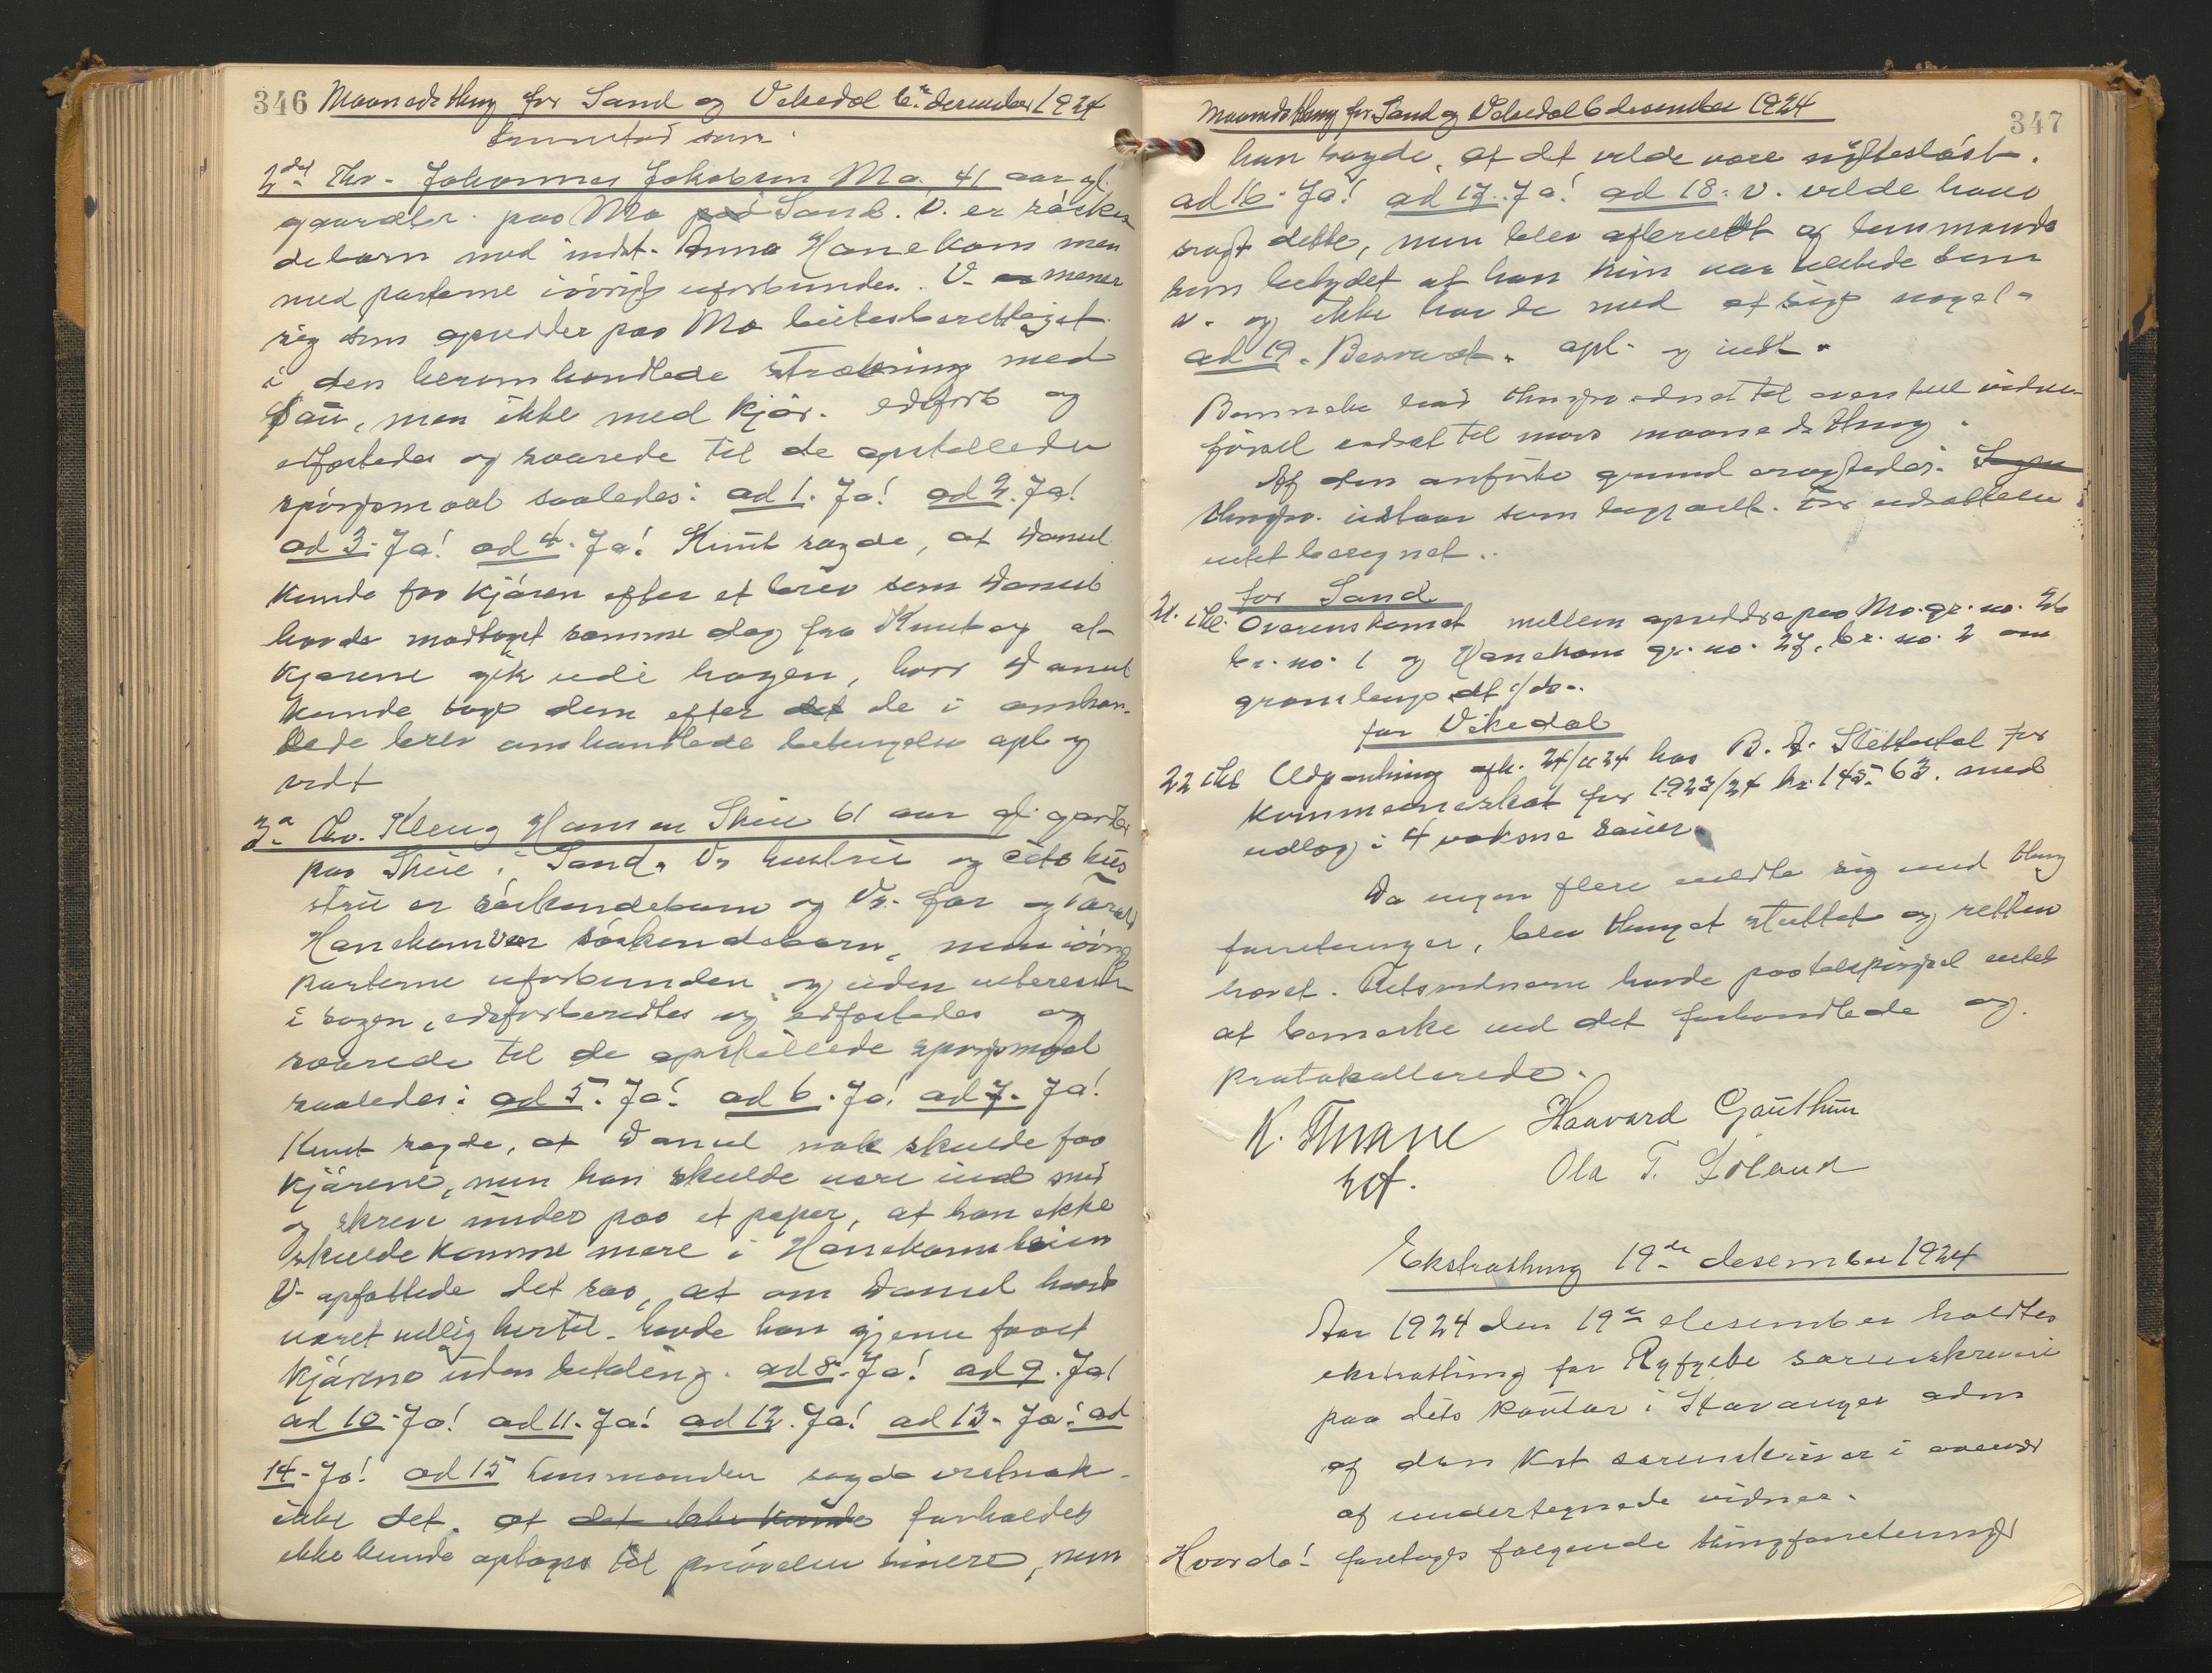 346 Maanedsthing for Sand og Vikedal 6te desember 1924
2det Thv. Johannes Jakobsen Mo 41 aar gl.
gaardbr. paa Mo paa Sand. V. er søsken
debarn med indst. Anna Hanekam men
med parterne iøvrigt uforbunden. V. mener
sig som opsidder paa Mo beitesberettiget
i den heromhandlede strækning med
sau, men ikke med kjør. edforb og
edfæstedes og svarede til de opstillede
spørgsmaal saaledes: ad 1. Ja! ad 2. Ja!
ad 3. Ja! ad 4. Ja! Knut sagde, at Daniel
kunde faa kjøren efter et brev som Daniel
havde modtaget samme dag fra Knut og at
kjørene gik ude i hagen, hvor Daniel
kunde tage dem efter det de i omhan-
dlede brev omhandlede betingelser opl. og
vedt
3die Thv. Kleng Hansen Skeie 61 aar gl. gardbr
paa Skeie i Sand. Vs hustru og cits hus
stru er søskendebarn og Vs. far og Tarald
Hanekam var søskendebarn, men iøvrig
parterne uforbunden og uden interesse
i sagen, edsforberedtes og edfæstedes og
svarede til de opstillede spørgsmaal
saaledes: ad 5. Ja! ad 6. Ja! ad 7. Ja!
Knut sagde, at Daniel nok skulde faa
kjørene, men han skulde være med
og skrive under paa et papir, at han ikke
skulde komme mere i Hanekamheien
V. opfattede det saa, at om Daniel havde
været villig hertil, havde han gjerne faaet
kjørene uden betaling. ad 8. Ja! ad 9. Ja!
ad 10. Ja! ad 11. Ja! ad 12. Ja! ad 13. Ja! ad
14. Ja! ad 15 Lensmanden sagde vistnok
ikke det, at det ikke kunde forholdet
ikke kunde optages til prøvelse senere, men
Maanedsthing for Sand og Vikedal 6 desember 1924 347
han sagde, at det vilde være nytteløst.
ad 16. Ja! ad 17. Ja! ad 18. V. vilde have
sagt dette, men blev afbrudt af lensmanden
som betydet at han kun var tilstede som
v. og ikke havde med at sige noget.
ad 19. Besvaret. opl. og vedt.
til eventuel vidne-
førsel udsat til mars maanedsthing.
Af den anførte grund Sagen
Thingsv. utstaar som begjært. For udsættelse
intet beregnet.
for Sand
21. Thl. Overenskomst mellem opsiddere paa Mo gr. no. 26
br. no. 1 og Hanekam gr. no. 27, br. no. 2 om
grænselinje dt. d/do.
for Vikedal
22 Thl Udpantning afh. 24/11 24 hos B. J. Slettedal for
kommuneskat for 1923/24 kr. 145.63. med
udlæg i 4 voksne sauer.
Da ingen flere meldte sig med thing
forretninger, blev thinget sluttet og retten
hævet. Retsvidnerne havde paa tilspørgsel intet
at bemerke ved det forhandlede og
protokollerede.
K. Thrane Haavard Gauthun
Ola T. Løland
Ekstrathing 19de desember 1924
Aar 1924 den 19de desember holdtes
ekstrathing for Ryfylke sorenskriveri
paa dets kontor i Stavanger adm
af den kst sorenskriver i overvær
af undertegnede vidner.
Hvorda! foretages følgende thingforretninger